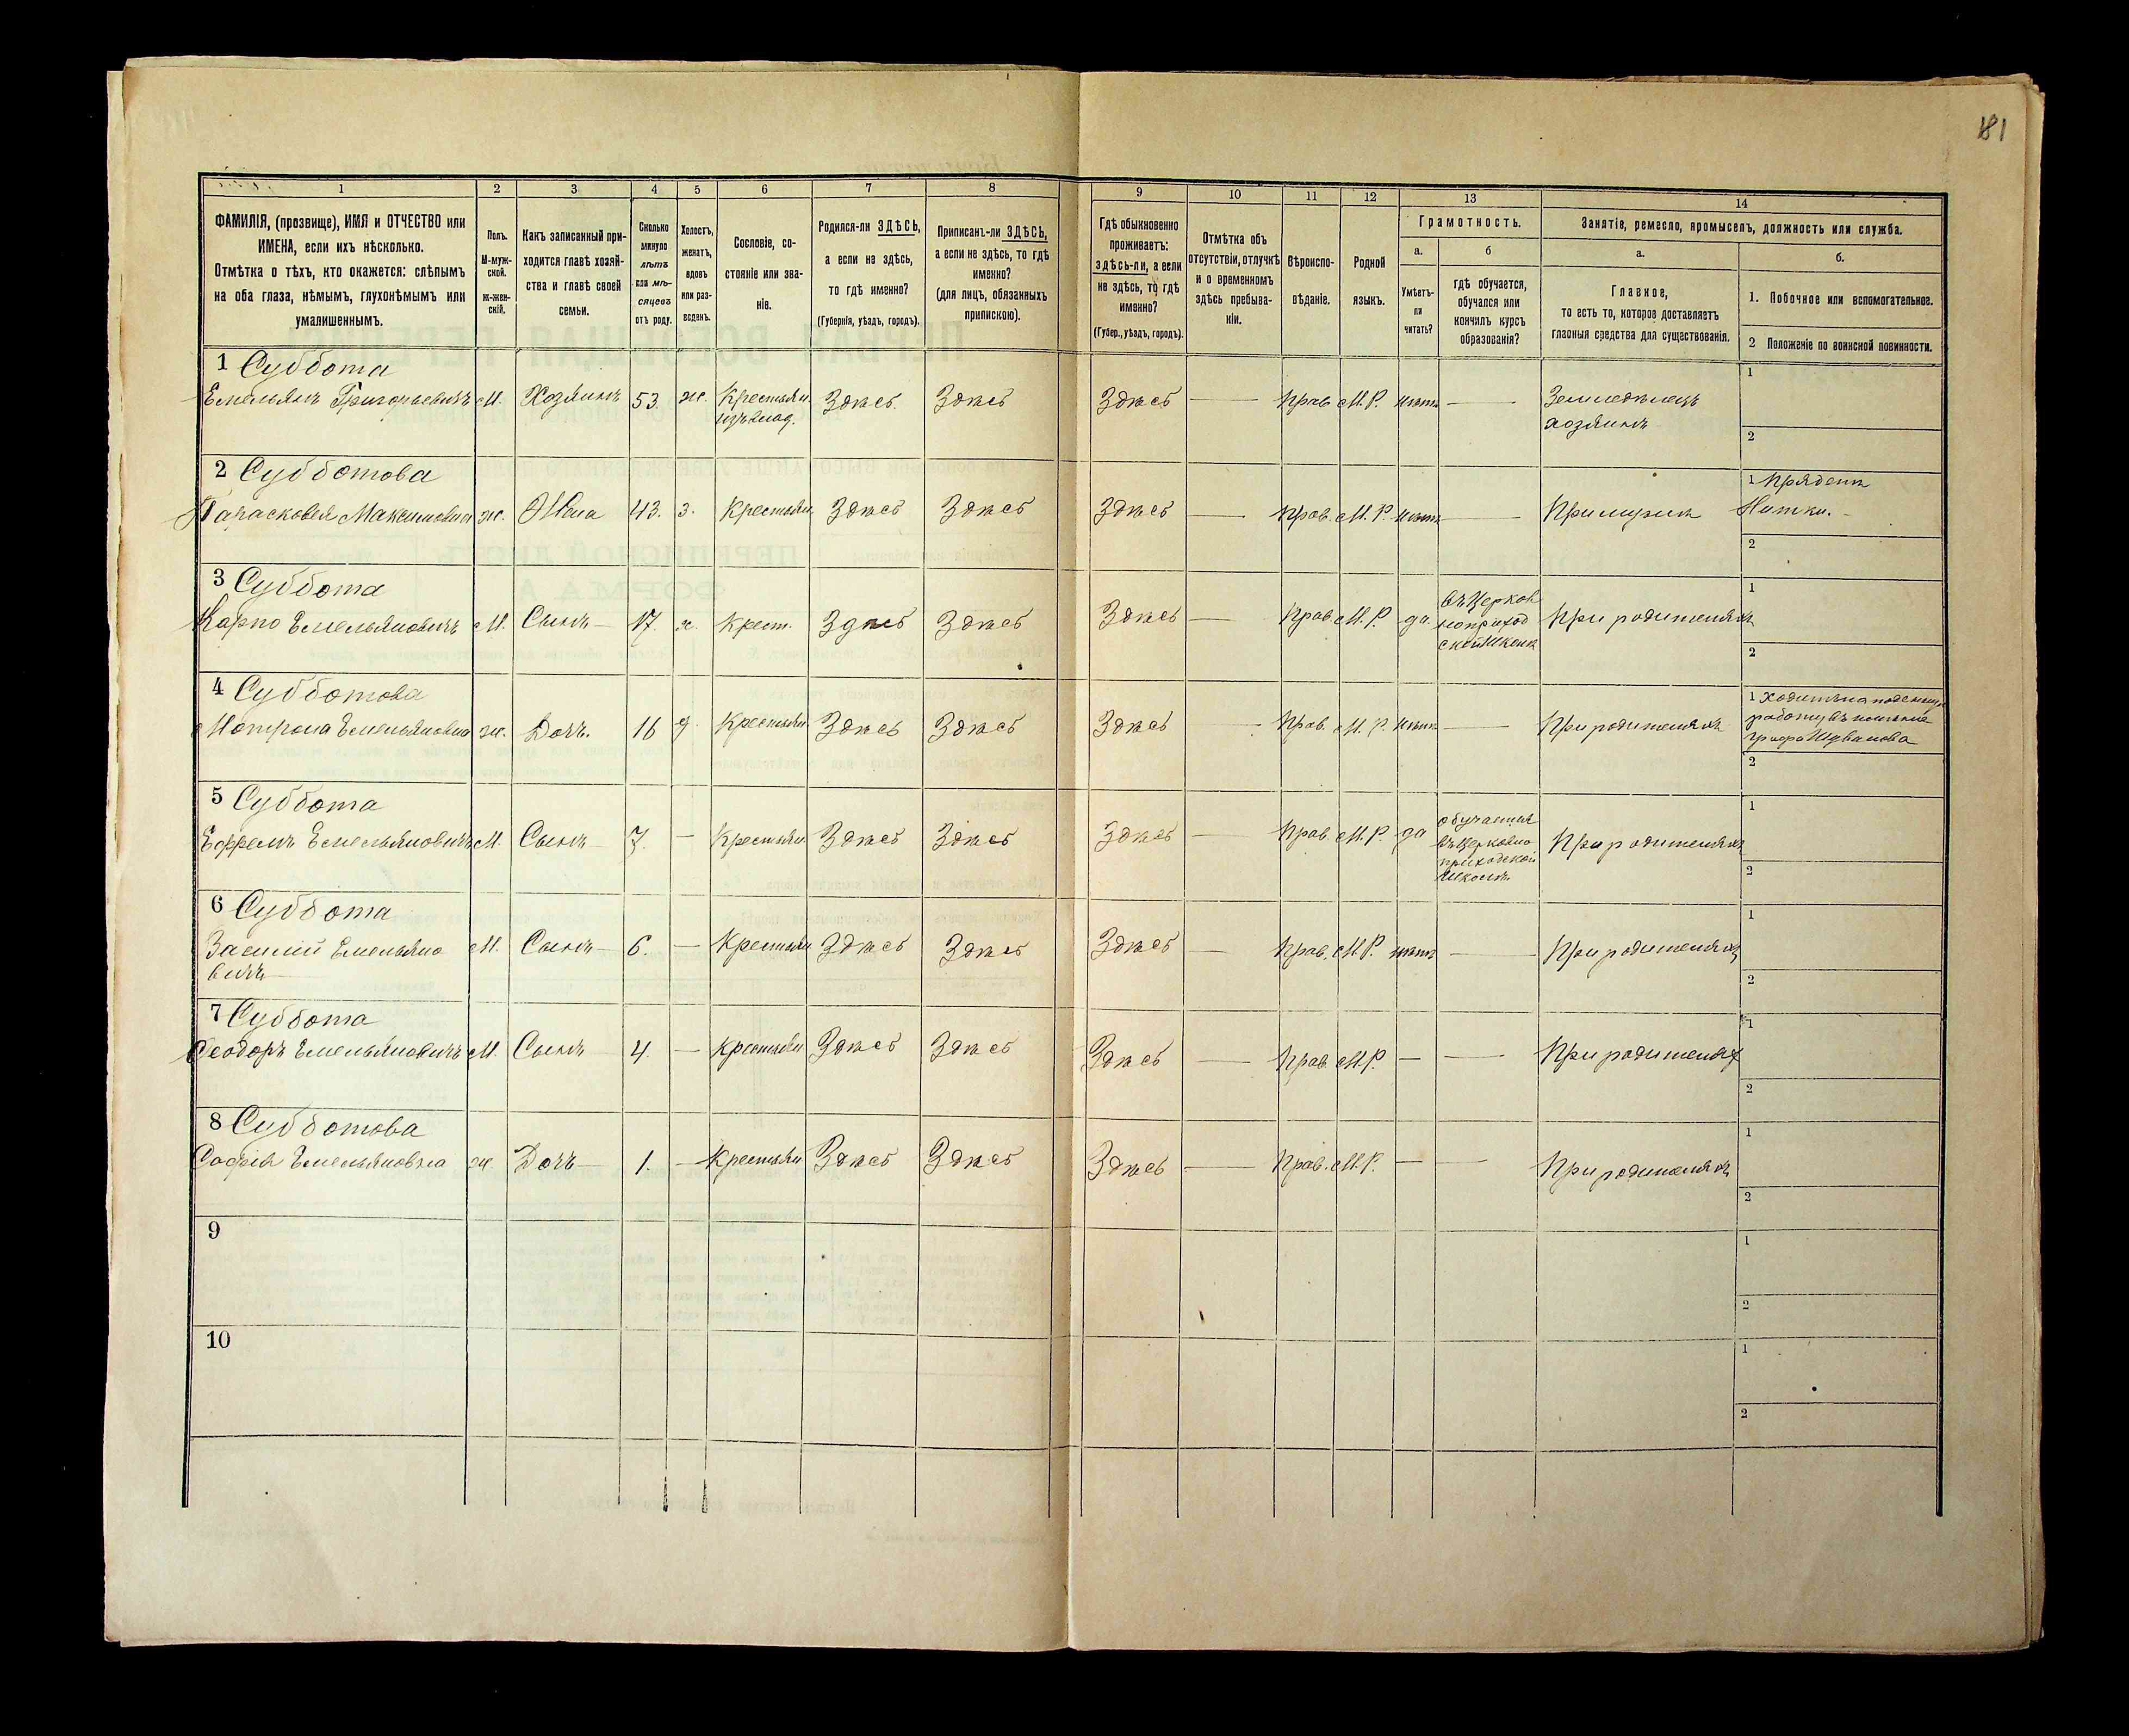 181
1
2
3
4
5
6
7
8
9
10
11
12
13
14
ФАМИЛІЯ, (прозвище), ИМЯ и ОТЧЕСТВО или
ИМЕНА, если ихъ нѣсколько.
Отмѣтка о тѣхъ, кто окажется: слѣпымъ
на оба глаза, нѣмымъ, глухонѣмымъ или
умалишеннымъ.
Полъ.
М-муж-
ской.
ж-жен-
скій.
Какъ записанный при-
ходится главѣ хозяй-
ства и главѣ своей
семьи.
Сколько
минуло
лѣтъ
или мѣ-
сяцевъ
отъ роду.
Холостъ,
женатъ,
вдовъ
или раз-
веденъ.
Сословіе, со-
стояніе или зва-
ніе.
Родился-ли ЗДѢСЬ,
а если не здѣсь,
то гдѣ именно?
(Губернія, уѣздъ, городъ).
Приписанъ-ли ЗДѢСЬ,
а если не здѣсь, то гдѣ
именно?
(для лицъ, обязанныхъ
припискою).
Гдѣ обыкновенно
проживаетъ:
здѣсь-ли, а если
не здѣсь, то гдѣ
именно?
(Губер., уѣздъ, городъ).
Отмѣтка объ
отсутствіи, отлучкѣ
и о временномъ
здѣсь пребыва-
ніи.
Вѣроиспо-
вѣданіе.
Родной
языкъ.
Грамотность.
а.
Умѣетъ-
ли
читать?
б
гдѣ обучается,
обучался или
кончилъ курсъ
образованія?
Занятіе, ремесло, промыселъ, должность или служба.
а.
Главное,
то есть то, которое доставляетъ
главныя средства для существованія.
б.
1. Побочное или вспомогательное.
2 Положеніе по воинской повинности.
1 Суббота
Емельянъ Григорьевичъ М. Хозяинъ 53. ж. Крестьян. Здѣсь Здѣсь Здѣсь — Прав М.Р. нѣтъ — Земледѣлецъ
изъ влад. хозяинъ
1
2
2 Субботова
Парасковья Максимовна ж. Жена 43. з. Крестьян Здѣсь Здѣсь Здѣсь — Прав. М.Р. нѣтъ — При мужѣ
1 Пряденіе
Нитки.
2
3 Суббота
Карпо Емельяновичъ М. Сынъ 17. х. Крест. Здѣсь Здѣсь Здѣсь — Прав. М.Р. да При родителяхъ
въ Церков
ноприход
ской Школѣ
1
2
4 Субботова
Матрона Емельяновна ж. Дочь. 16 д. Крестьян Здѣсь Здѣсь Здѣсь — Прав. М.Р. нѣтъ — При родителяхъ
1 Ходитъ на поденную
работу въ имѣніе
графа Шувалова
2
5 Суббота
Ефремъ Емельяновичъ М. Сынъ 7. — Крестьян Здѣсь Здѣсь Здѣсь — Прав М.Р. да При родителяхъ
обучается
въ Церковно
приходской
Школѣ.
1
2
6 Суббота
Василій Емельяно М. Сынъ 6. — Крестьян Здѣсь Здѣсь Здѣсь — Прав. М.Р. нѣтъ — При родителяхъ
вичъ
1
2
7 Суббота
Феодоръ Емельяновичъ М. Сынъ 4. — Крестьян Здѣсь Здѣсь Здѣсь — Прав. М.Р. — — При родителях
1
2
8 Субботова
Софія Емельяновна ж. Дочь 1. — Крестьян Здѣсь Здѣсь Здѣсь — Прав. М.Р. — — При родителяхъ
1
2
9
1
2
10
1
2